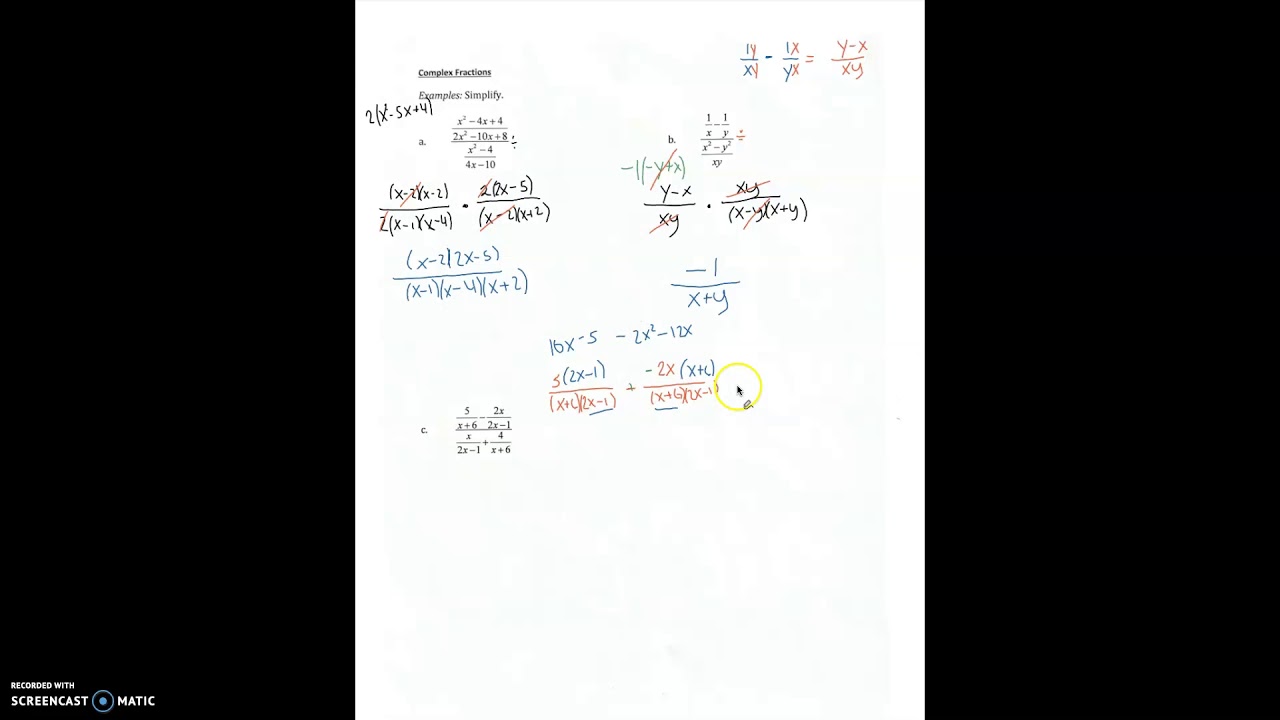 1y/xy - 1x/yx = y-x/xy
Complex Fractions
Examples: Simplify.
2(x²-5x+4)
a. x² - 4x + 4 / 2x² - 10x + 8 ÷ x² - 4 / 4x - 10
b. 1/x - 1/y ÷ x² - y² / xy
-1(-y+x)
(x-2)(x-2) / 2(x-1)(x-4) · 2(2x-5) / (x-2)(x+2)
y-x / xy · xy / (x-y)(x+y)
(x-2)(2x-5) / (x-1)(x-4)(x+2)
-1 / x+y
10x-5 -2x²-12x
5(2x-1) / (x+6)(2x-1) + -2x(x+6) / (x+6)(2x-1)
c. 5/x+6 - 2x/2x-1 / x/2x-1 + 4/x+6
RECORDED WITH
SCREENCAST MATIC